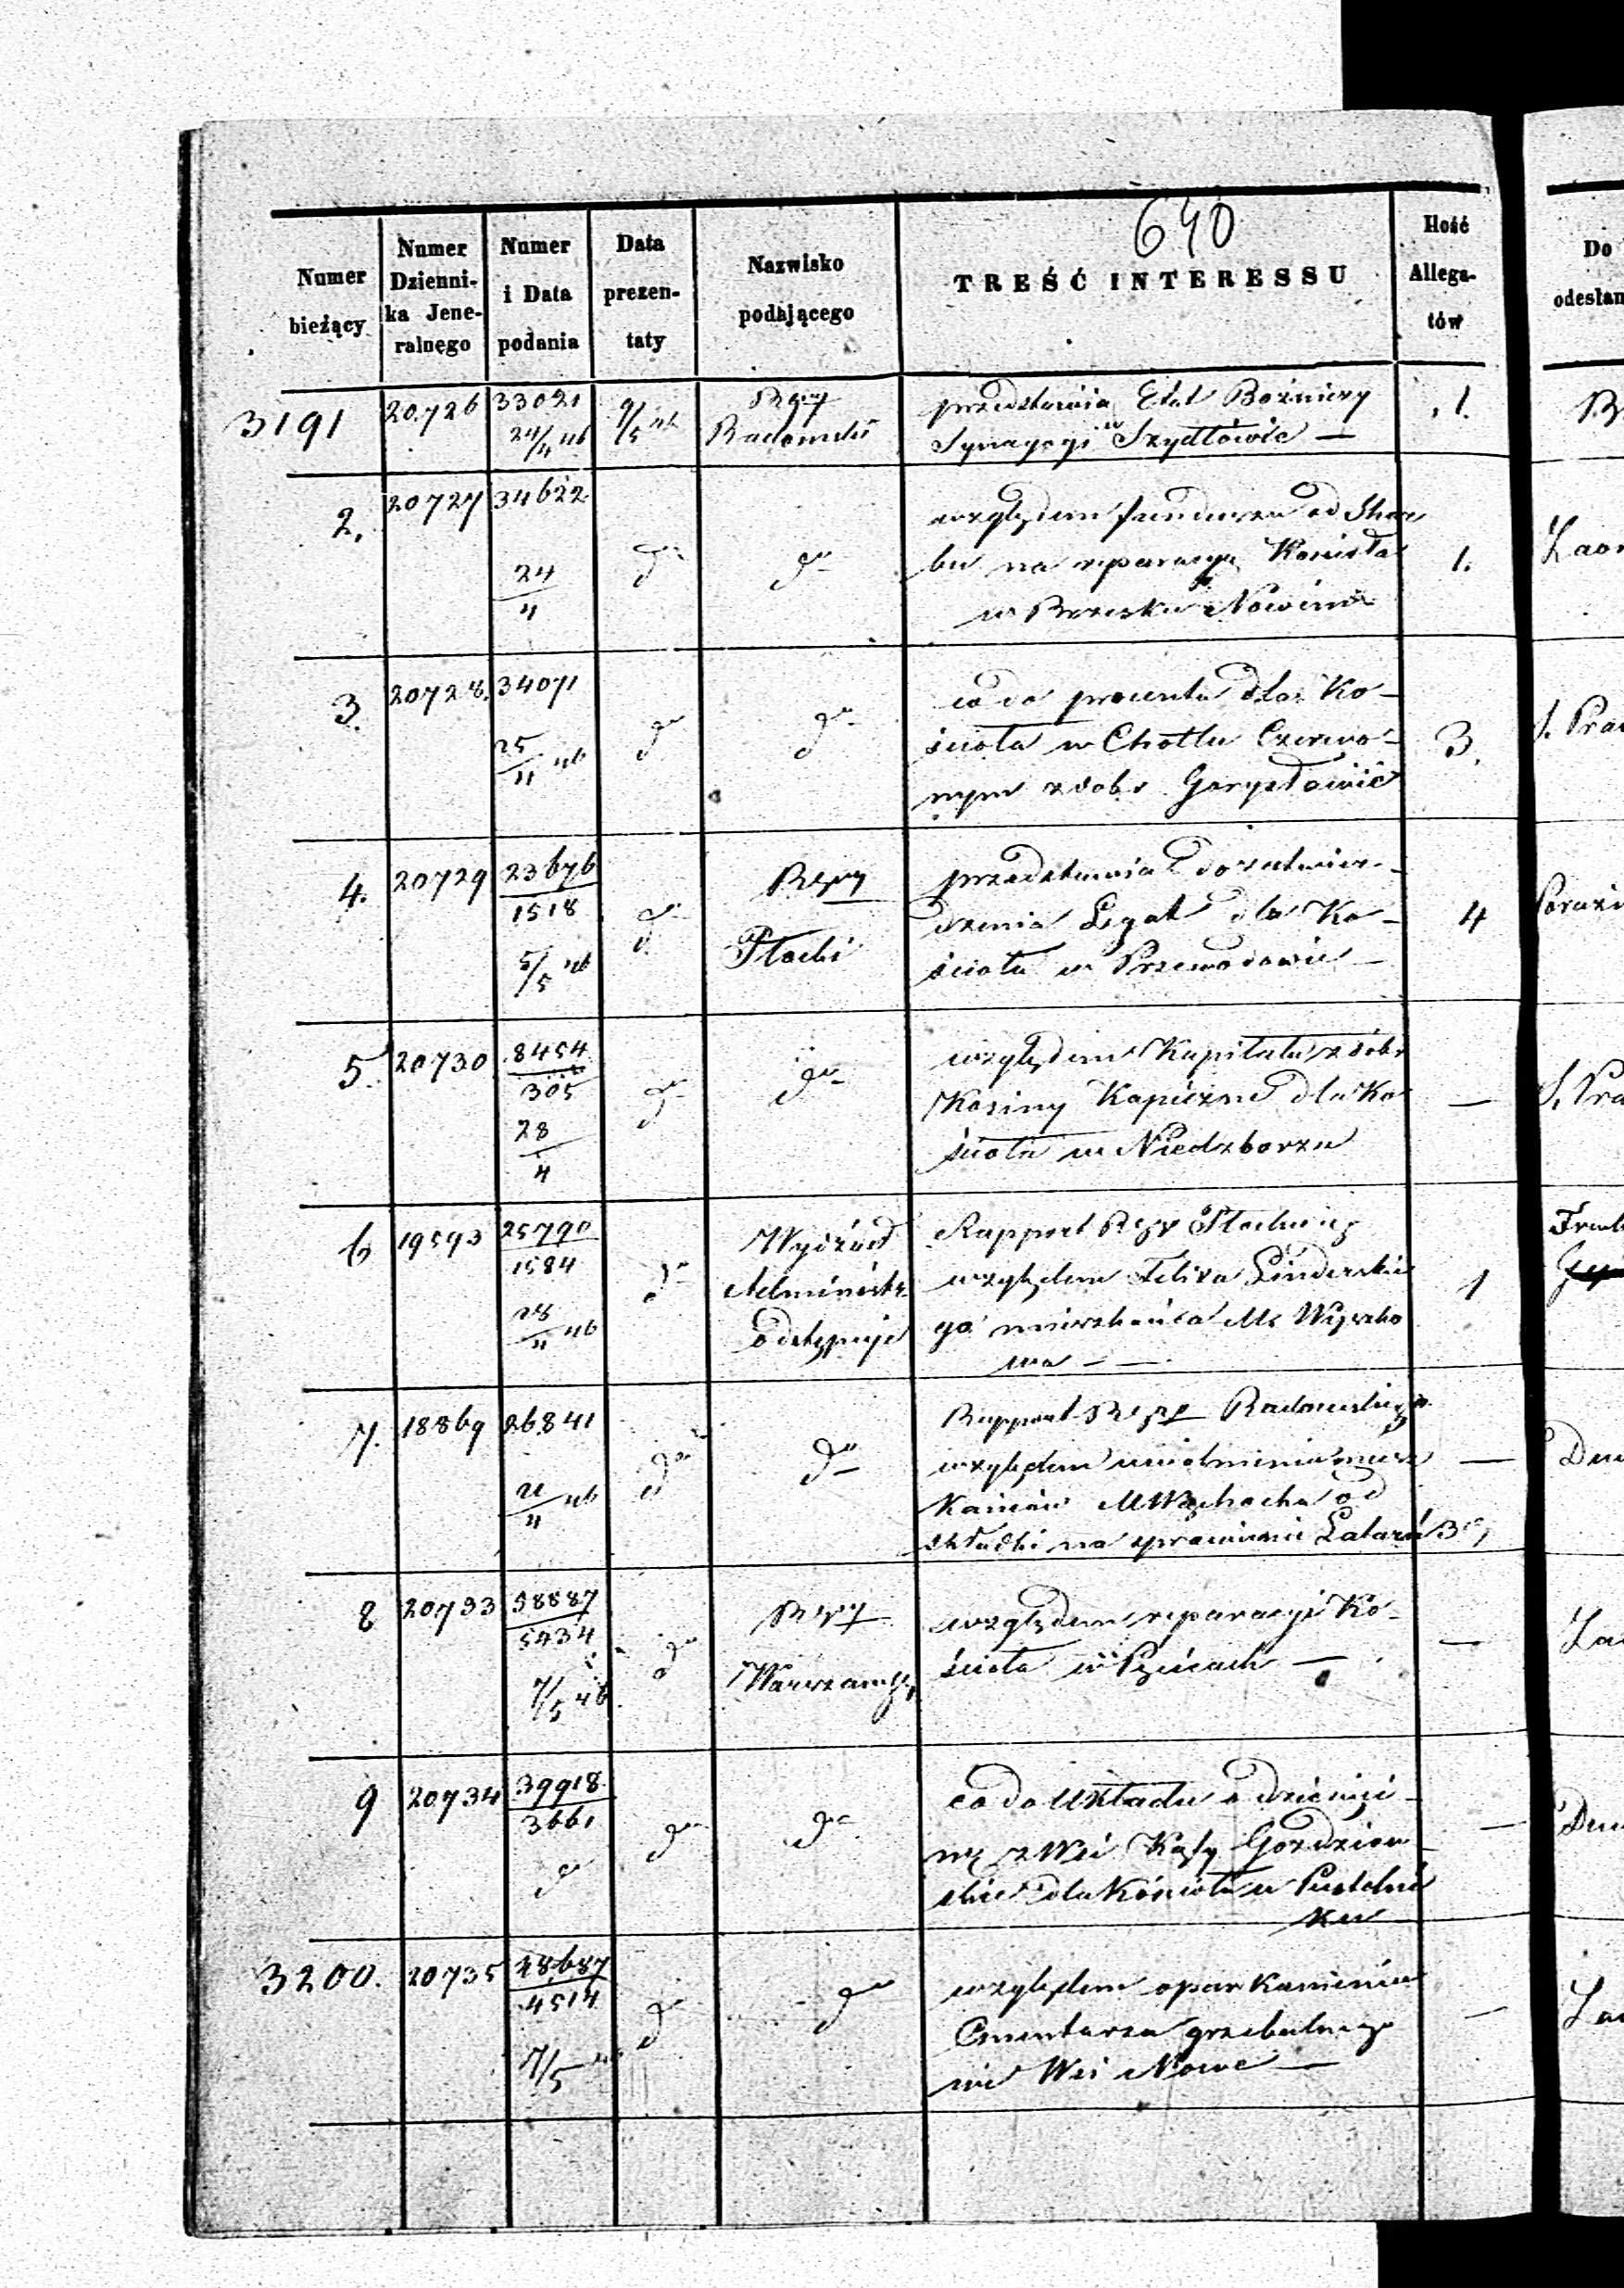 640
Numer bieżący | Numer Dziennika Jeneralnego | Numer i Data podania | Data prezentaty | Nazwisko podającego | TREŚĆ INTERESSU | Ilość Allegatów | Do odesłan
3191 | 20726 | 33021 24/4 46 | 9/5 46 | Rząd Radomski | przedstawia Etat Bożnicy | 1.
Synagogi w Szydłowie —
2. | 20727 | 34622 24/4 | do | do | względem funduszu od Skar | 1.
bu na reparacyą Kościoła
w Brzesku Nowem
3. | 20728. | 34071 25/4 46 | do | do | co do procentu dla Ko- | 3.
ścioła w Chotlu Czerwo-
nym z dobr
4. | 20729 | 23676/1518 5/5 46 | do | Rząd Płocki | przedstawia do zatwier- | 4
dzenia Legat dla Ko-
ścioła w Przewodowie —
5. | 20730 | 8454/305 28/4 | do | do | względem Kapitału z dobr | —
Kosiny Kapiczne dla Ko
ścioła w Niedzborzu
6 | 19593 | 25790/1584 28/4 46 | do | Wydział Administr. odstępuje | Rapport Rządu Płockieg | 1
względem Felixa Linderskie
go mieszkańca M. Wyszko
wa — —
7. | 18869 | 26841 21/4 46 | do | do | Rapport Rządu Radomskiego | —
względem uwolnienia miesz
kańców M Wąchocka od
składki na sprawienie Latarń
8 | 20733 | 38887/5434 7/5 46 | do | Rząd Warszawski | względem reparacyi Ko- | —
ścioła w Pęcicach —
9 | 20734 | 39918/3661 do | do | do | co do Układu o dziesięci- | —
nę z Wsi Kąty Goździew
skie dla Kościoła w Pustelni
ku
3200. | 20735 | 48687/4514 7/5 | do | do | względem oparkanienia | —
Cmentarza grzebalnego
we Wsi Nowe —